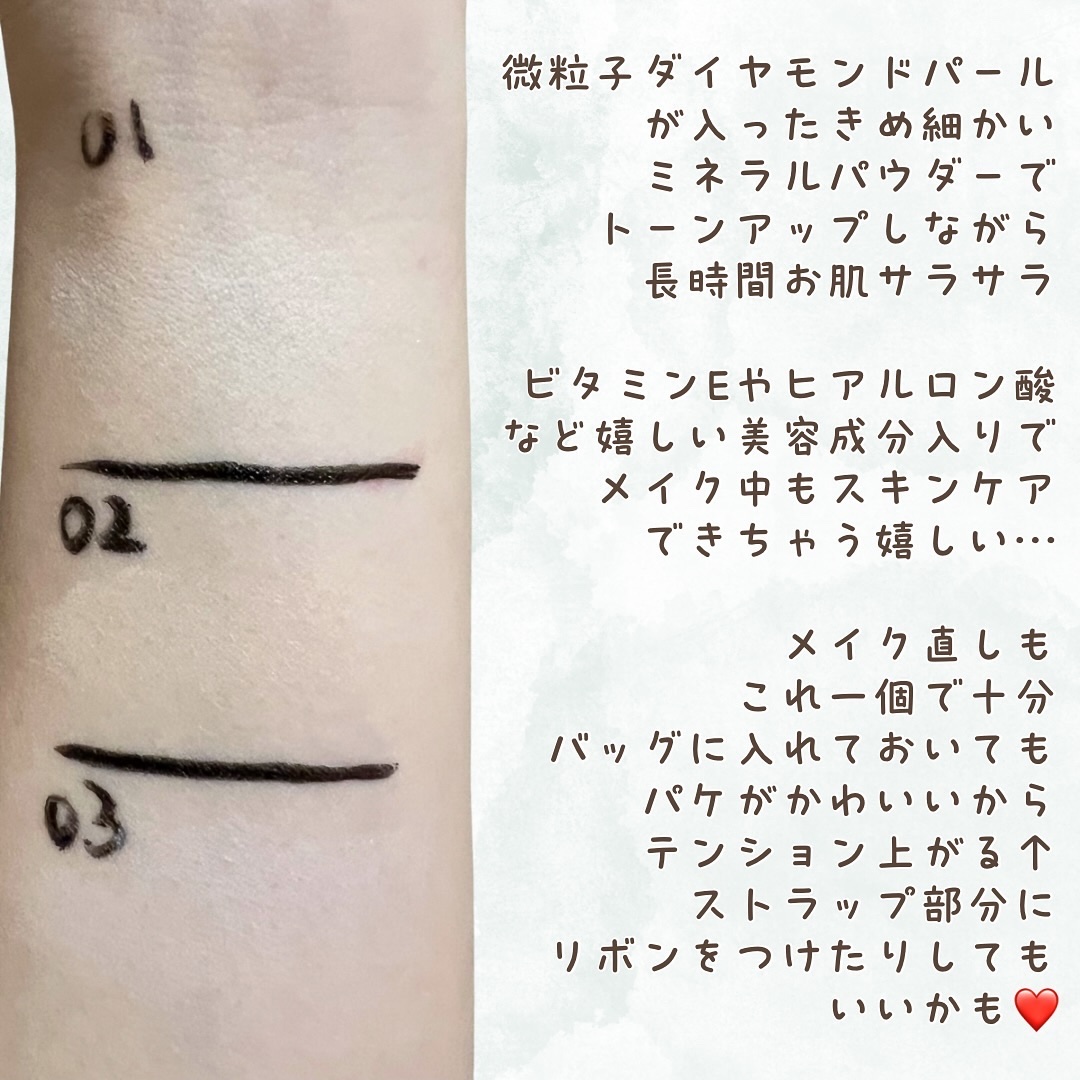 01
02
03
微粒子ダイヤモンドパール
が入ったきめ細かい
ミネラルパウダーで
トーンアップしながら
長時間お肌サラサラ
ビタミンEやヒアルロン酸
など嬉しい美容成分入りで
メイク中もスキンケア
できちゃう嬉しい…
メイク直しも
これ一個で十分
バッグに入れておいても
パケがかわいいから
テンション上がる↑
ストラップ部分に
リボンをつけたりしても
いいかも❤️